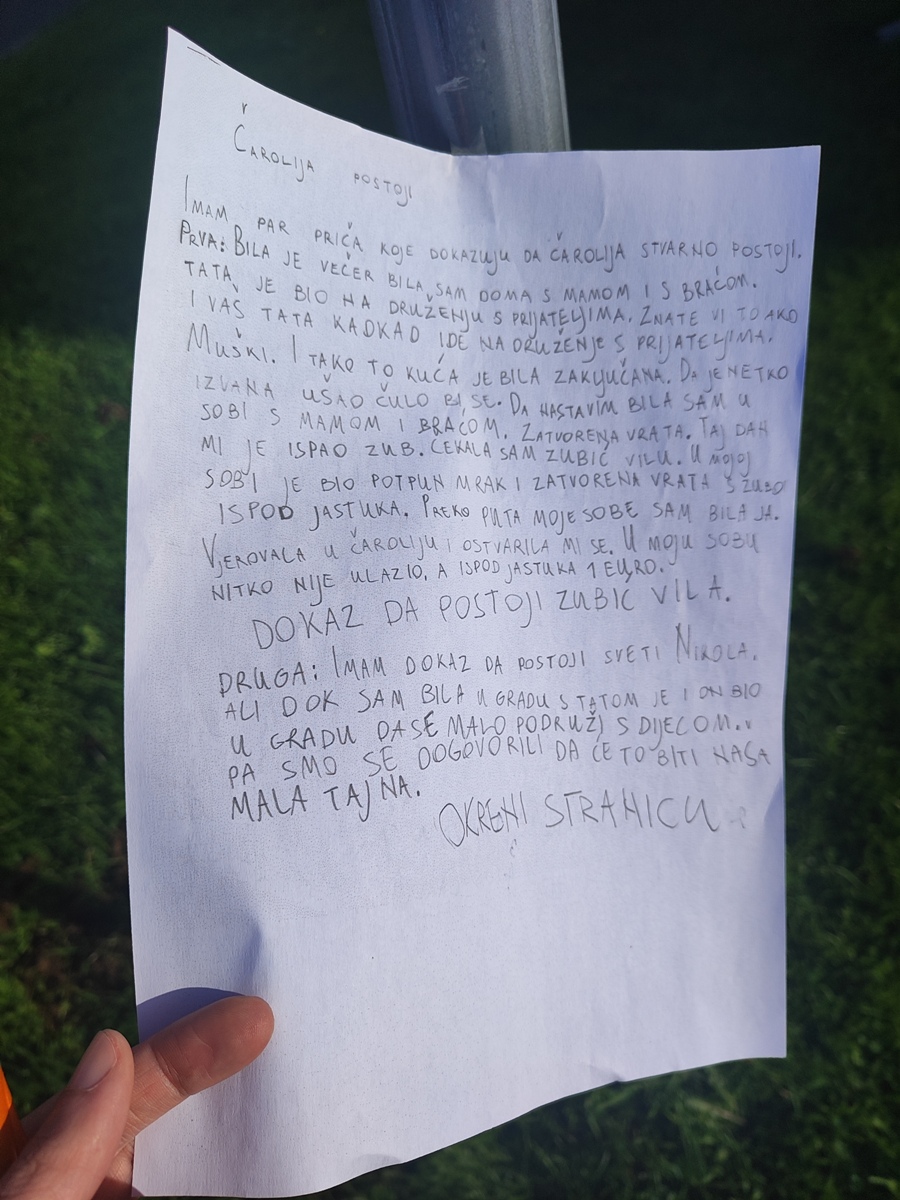 ČAROLIJA POSTOJI
IMAM PAR PRIČA KOJE DOKAZUJU DA ČAROLIJA STVARNO POSTOJI.
PRVA: BILA JE VEČER BILA SAM DOMA S MAMOM I S BRAĆOM.
TATA JE BIO NA DRUŽENJU S PRIJATELJIMA. ZNATE VI TO AKO
I VAŠ TATA KADKAD IDE NA DRUŽENJE S PRIJATELJIMA.
MUŠKI. I TAKO TO KUĆA JE BILA ZAKLJUČANA. DA JE NETKO
IZVANA UŠAO ČULO BI SE. DA NASTAVIM BILA SAM U
SOBI S MAMOM I BRAĆOM. ZATVORENA VRATA. TAJ DAN
MI JE ISPAO ZUB. ČEKALA SAM ZUBIĆ VILU. U MOJOJ
SOBI JE BIO POTPUN MRAK I ZATVORENA VRATA S ZUBO
ISPOD JASTUKA. PREKO PUTA MOJE SOBE SAM BILA JA.
VJEROVALA U ČAROLIJU I OSTVARILA MI SE. U MOJU SOBU
NITKO NIJE ULAZIO, A ISPOD JASTUKA 1 EURO.
DOKAZ DA POSTOJI ZUBIĆ VILA.
DRUGA: IMAM DOKAZ DA POSTOJI SVETI NIKOLA.
ALI DOK SAM BILA U GRADU S TATOM JE I ON BIO
U GRADU DA SE MALO PODRUŽI S DIJECOM.
PA SMO SE DOGOVORILI DA ĆE TO BITI NAŠA
MALA TAJNA.
OKRENI STRANICU